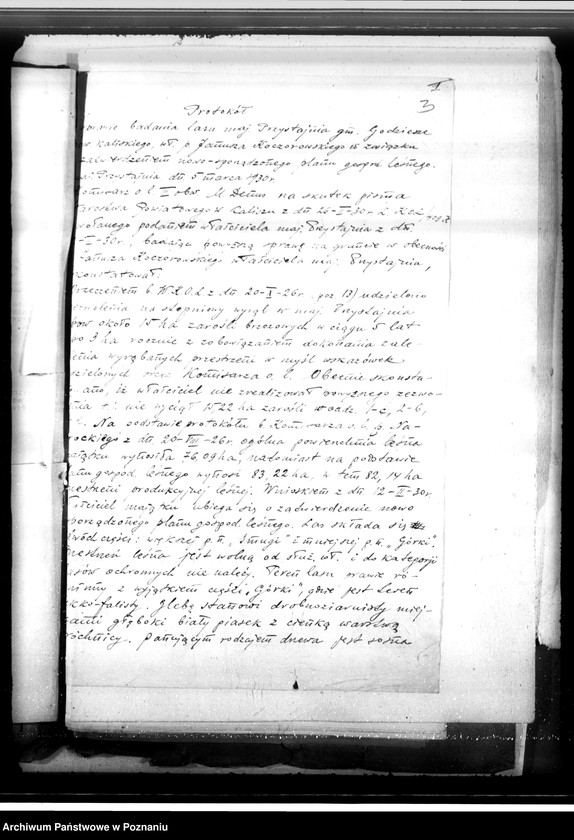 3
Protokół
badania lasu maj. Przystajnia gm. Godziesze
kaliskiego, wł. p. Janusza Roczorowskiego w związku
zatwierdzeniem nowo-sporządzonego planu gospod. leśnego.
Przystajnia dn. 5 marca 1930r.
Komisarz o. l. I obw. M. Denus na skutek pisma
Starostwa Powiatowego w Kaliszu z dn. 26-I-30r. L.
podaniem właściciela maj. Przystajnia z dn.
-I-30r., badając pow-szą sprawę na gruncie w obecności
Janusza Roczorowskiego właściciela maj. Przystajnia,
skonstatował.
Orzeczeniem b. W.K.O.L z dn. 20-I-26r. poz. 13) udzielono
zezwolenia na stopniowy wyrąb w maj. Przystajnia
około 15 ha zarośli brzozowych w ciągu 5 lat
po 3 ha rocznie z zobowiązaniem dokonania zale-
sienia wyrąbanych przestrzeni w myśl wskazówek
udzielonych przez Komisarza o. l. Obecnie skonsta-
ano, iż właściciel nie zrealizował powyższego zezwo-
nia t. j. nie wyciął 15,22 ha zarośli w odz. 1-c, 2-b,
Na podstawie protokółu b. Komisarza o. l. p. Na-
rockiego z dn. 20-VIII-26r. ogólna powierzchnia leśna
majątku wynosiła 76,09 ha, natomiast na podstawie
planu gospod. leśnego wynosi 83,22 ha, w tem 82,14 ha
przestrzeni produkcyjnej leśnej. Wnioskiem z dn. 12-II-30r.
właściciel majątku ubiega się o zatwierdzenie nowo
sporządzonego planu gospod. leśnego. Las składa się
dwóch części: większej p.n. „Smugi" i mniejszej p.n. „Górki"
Przestrzeń leśna jest wolną od służ. wł. i do kategorji
lasów ochronnych nie należy. Teren lasu prawie ró-
wninny z wyjątkiem części „Górki", gdzie jest teren
lekko-falisty. Glebę stanowi drobnoziarnisty miej-
scami głęboki biały piasek z cienką warstwą
próchnicy. Panującym rodzajem drzewa jest sosna
Archiwum Państwowe w Poznaniu